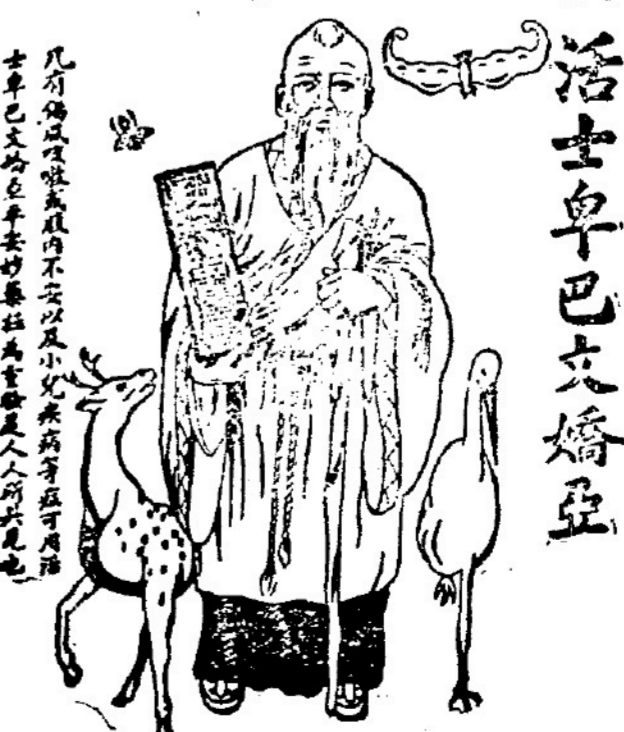 活士卑巴文嬌亞
凡有傷風咳嗽或腹內不安以及小兒疾病等症可用活
士卑巴文嬌亞平安妙藥極為靈驗是人人所共見也